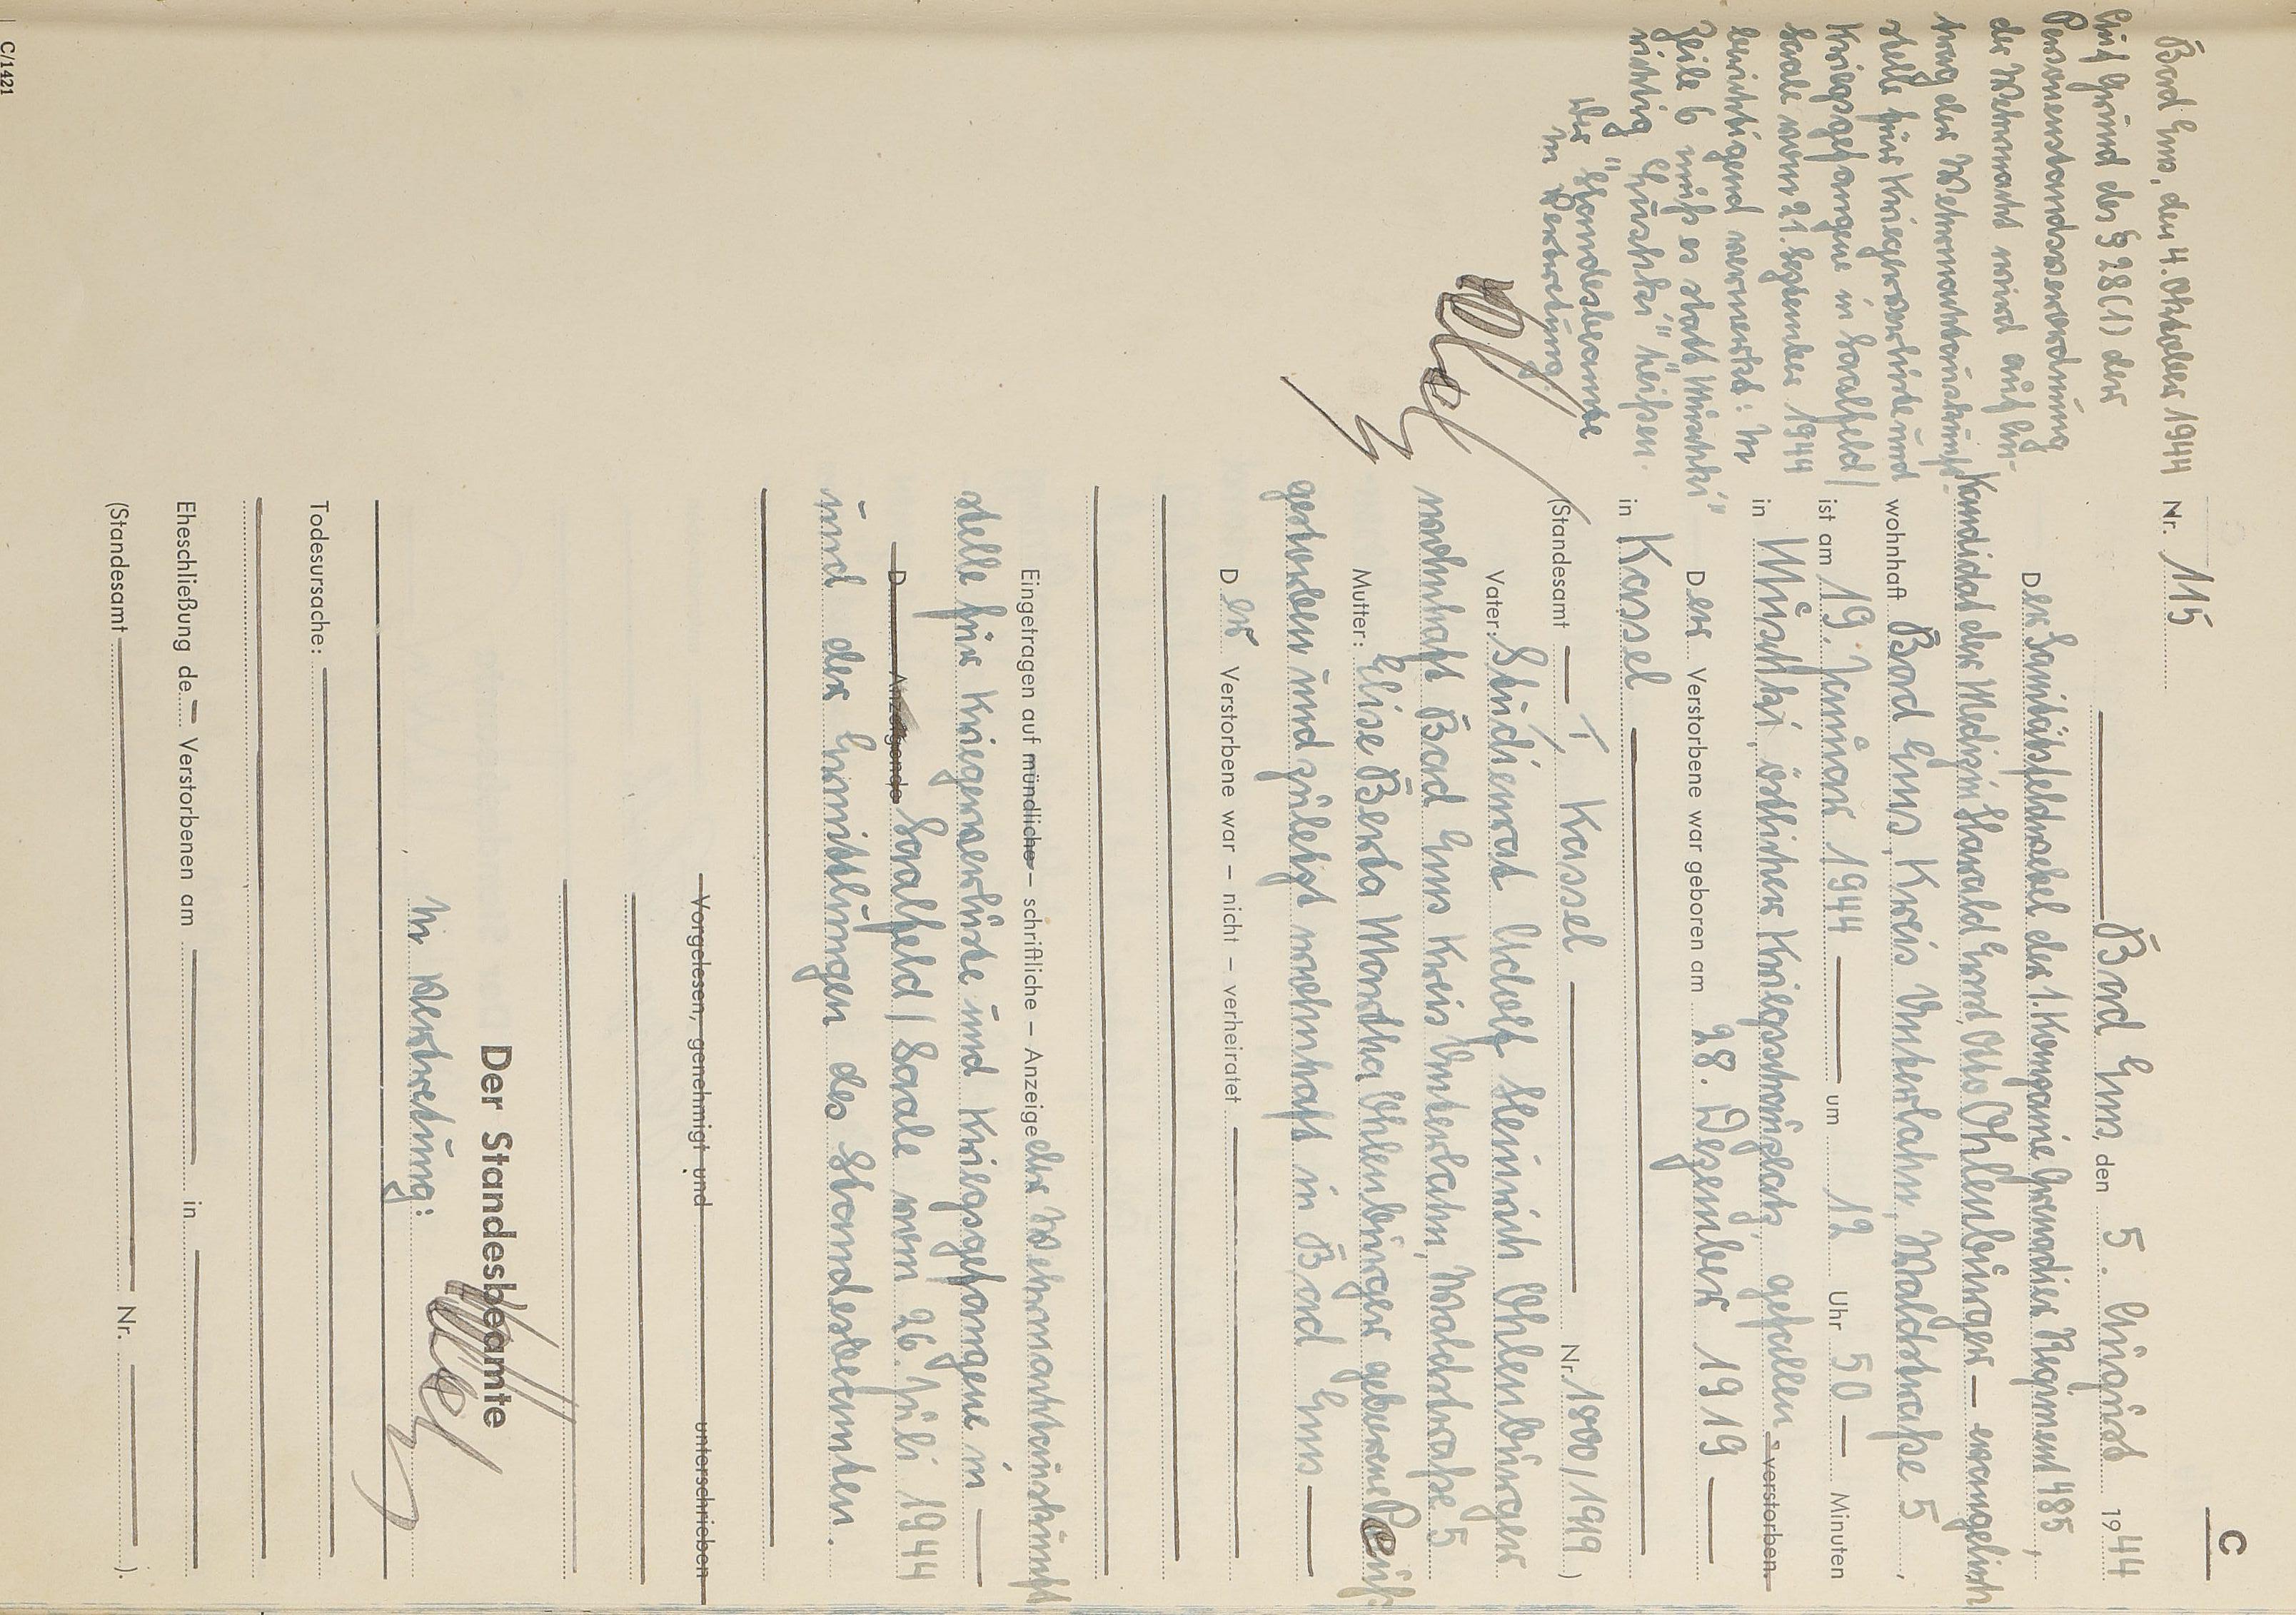 C
Nr. 115
Bad Ems, den 5. August 1944
Der Sanitätsfeldwebel der 1. Kompanie Grenadier Regiment 485,
Kandidat der Medizin Harald Ernst Otto Ohlenburger — evangelisch
wohnhaft Bad Ems, Kreis Unterlahn, Waldstraße 5,
ist am 19. Januar 1944 — um 12 Uhr 50 — Minuten
in Mustki, östlicher Kriegsschauplatz, gefallen - verstorben.
Der Verstorbene war geboren am 28. Dezember 1919 —
in Kassel —
(Standesamt — I, Kassel — Nr. 1800/1919)
Vater: Studienrat Adolf Heinrich Ohlenburger
wohnhaft Bad Ems Kreis Unterlahn, Waldstraße 5
Mutter: Elise Berta Martha Ohlenburger geborene
gestorben und zuletzt wohnhaft in Bad Ems —
Der Verstorbene war – nicht – verheiratet —
Eingetragen auf mündliche – schriftliche – Anzeige der Wehrmachtauskunft
stelle für Kriegerverluste und Kriegsgefangene in —
D Anzeigende Saalfeld / Saale vom 26. Juli 1944
und der Ermittlungen des Standesbeamten.
Vorgelesen, genehmigt und unterschrieben
Der Standesbeamte
In Vertretung:
Todesursache: —
Eheschließung de — Verstorbenen am — in —
(Standesamt — Nr. — ).
Bad Ems, den 4. Oktober 1944
Auf Grund des § 28(1) der
Personenstandsverordnung
der Wehrmacht wird auf An-
trag der Wehrmachtauskunft-
stelle für Kriegerverluste und
Kriegsgefangene in Saalfeld/
Saale vom 21. September 1944
berichtigend vermerkt: In
Zeile 6 muß es statt
richtig heißen.
Der Standesbeamte
In Vertretung:
C/1421